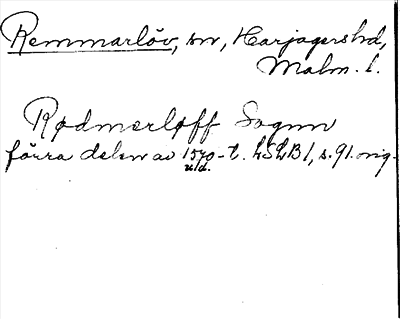 Remmarlöv, sn, Harjagers hd,
Malm. l.
Rødmerløff Sognn
förra delen av 1570-t. LSLB 1, s. 91. orig.
u/d.